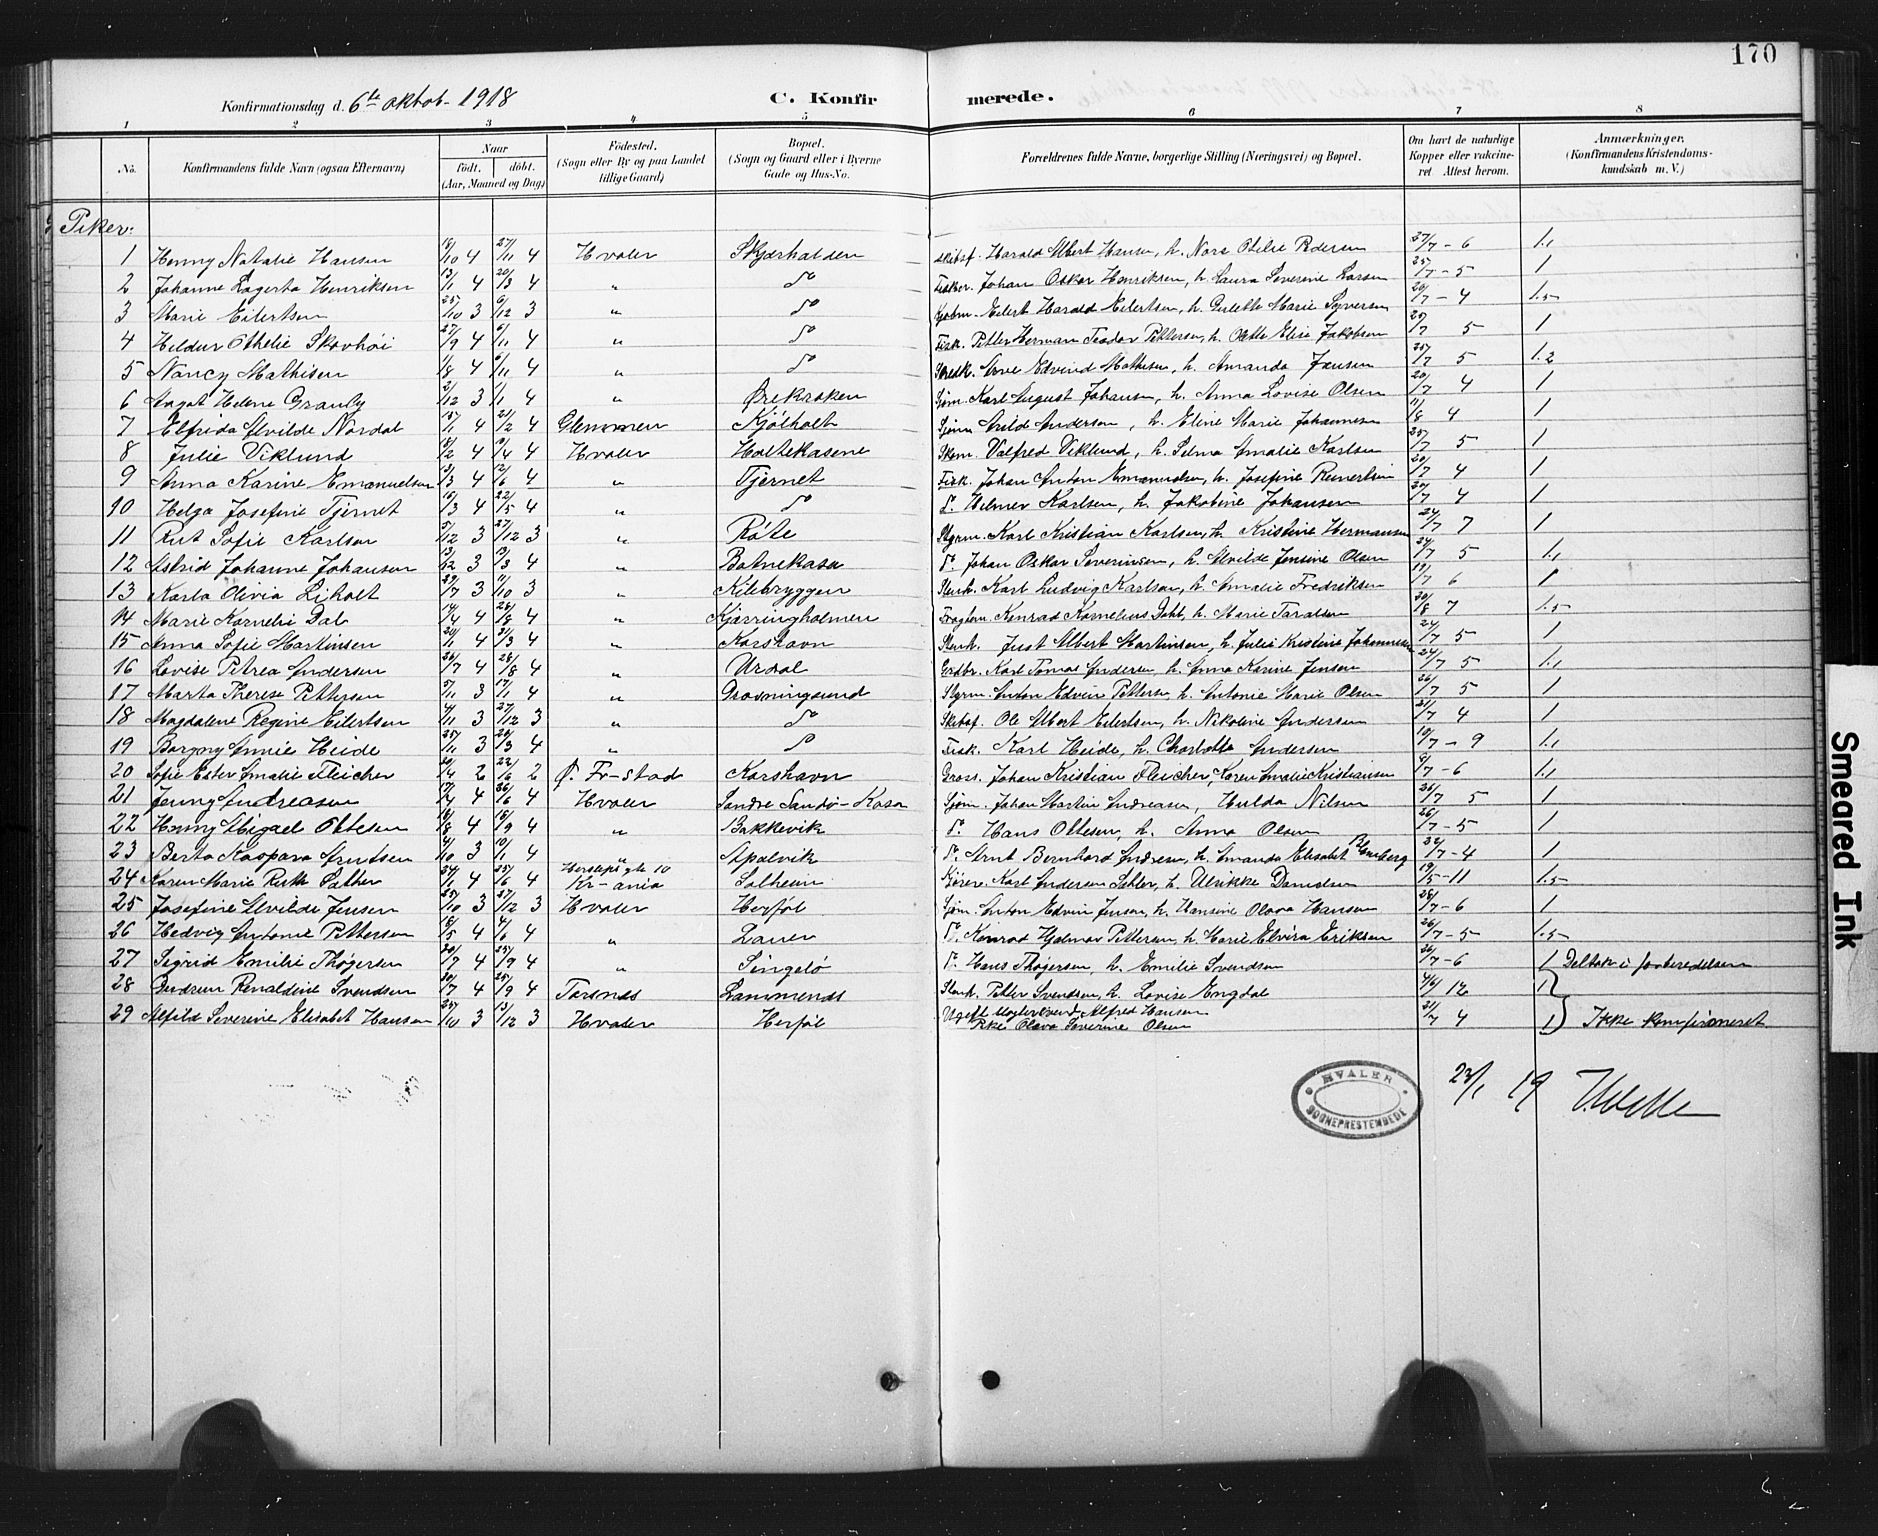 170
Konfirmationsdag d. 6te oktob. 1918 C. Konfirmerede.
1 2 3 4 5 6 7 8
No. Konfirmandens fulde Navn (ogsaa Efternavn) Naar født. døbt. (Aar, Maaned og Dag) Fødested. (Sogn eller By og paa Landet tillige Gaard) Bopæl. (Sogn og Gaard eller i Byerne Gade og Hus-No. Forældrenes fulde Navne, borgerlige Stilling (Næringsvei) og Bopæl. Om havt de naturlige Kopper eller vakcineret Attest herom. Anmærkninger. (Konfirmandens Kristendomskundskab m. V.)
Piker:
1 Henny Natalie Hansen 18/10 4 27/11 4 Hvaler Skjærhalden Skibsf. Harald Albert Hansen, h. Nora Otilie Pedersen 27/7 - 6 1.1
2 Johanne Lagerta Henriksen 13/1 4 20/3 4 " do Fisker. Johan Oskar Henriksen, h. Laura Severine Larsen 25/7 - 5 1
3 Marie Eilertsen 25/10 3 6/12 3 " do Eilert Harald Eilertsen, h. Marie Syversen 20/7 - 4 1.5
4 Hildur Othelie Skovhøi 27/9 4 6/11 4 " do Fisk. Petter Herman Teodor Pettersen, h. Elise Jakobsen 5 1
5 Nancy Mathisen 1/8 4 6/11 4 " do Edvind Mathisen, h. Amanda Jansen 25/7 5 1.2
6 Aagot Helene Granly 2/12 3 1/1 4 " Ørekroken Sjøm. Karl August Johansen, h. Anna Lovise Olsen 20/7 4 1
7 Elfrida Alvilde Nordal 15/1 4 21/2 4 Glemmen Kjølholt Sjøm. Arild Andersen, h. Eline Marie Johannesen 11/8 4 1
8 Julie Viklund 18/2 4 4 Hvaler Holtekasene Valfred Viklund, h. Selma Amalie Karlsen 25/7 5 1
9 Anna Karine Emanuelsen 13/3 4 12/6 4 " Tjernet Fisk. Johan Anton Emanuelsen, h. Josefine Reinertsen 20/7 4 1
10 Helga Josefine Tjernet 16/3 4 22/5 4 " do do Hilmer Karlsen, h. Jakobine Johansen 20/7 4 1
11 Rut Sofie Karlsen 5/12 3 27/12 3 " Røte Styrm. Karl Kristian Karlsen, h. Kristine Hermansen 24/7 7 1
12 Astrid Johanne Johansen 13/12 3 13/3 4 " Botnekasa do Johan Oskar Severinsen, h. Alvilde Jensine Olsen 24/7 5 1.1
13 Karla Olivia Liholt 29/7 3 11/10 3 " Kilebryggen Stenh. Karl Ludvig Karlsen, h. Amalie Fredriksen 19/7 6 1
14 Marie Kornelie Dal 14/4 4 28/8 4 " Kjærringholmen Konrad Kornelius Dahl, h. Marie Taraldsen 30/8 7 1.5
15 Anna Sofie Martinsen 20/1 4 21/3 4 " Korshavn Stenh. Just Albert Martinsen, h. Julia Kristine Johannesen 24/7 5 1
16 Lovise Petrea Andersen 26/7 4 28/8 4 " Urdal Grdbr. Karl Tomas Andersen, h. Anna Karine Jensen 24/7 5 1.1
17 Marta Therese Pettersen 5/11 3 17/1 4 " Gravningsund Styrm. Anton Edvin Pettersen, h. Antonie Marie Olsen 26/7 5 1
18 Magdalene Regine Eilertsen 4/11 3 27/12 3 " do Skibsf. Ole Albert Eilertsen, h. Nikoline Andersen 21/7 4 1
19 Borgny Annie Heide 25/11 3 20/3 4 " do Fisk. Karl Heide, h. Charlotte Andersen 10/7 - 9 1.1
20 Sofie Ester Amalie Fleicher 20/4 2 22/6 2 Ø. Fr-stad Korshavn Gross. Johan Kristian Fleicher, Karen Amalie Kristiansen 9/7 - 6 1.1
21 Jenny Andreasen 17/4 4 26/6 4 Hvaler Søndre Sandø-Kasa Sjøm. Johan Martin Andreasen, Hulda Nilsen 26/7 5 1
22 Henny Abigael Ottesen 18/8 4 18/9 4 " Bakkevik do Hans Ottesen, h. Anna Olsen 26/7 - 5 1
23 Berta Kaspara Arntsen 4/10 3 10/1 4 " Apalvik do Arnt Bernhard Andresen, h. Amanda Elisabet Blomberg 22/7 - 4 1
24 Karen Marie Ruth Sather 24/1 4 25/6 4 Herslebsgte 10 Kr-ania Solheim Karl Andersen h. Ulrikke Danielsen 19/5 - 11 1.5
25 Josefine Alvilde Jensen 25/10 3 27/12 3 Hvaler Herføl Sjøm. Anton Edvin Jensen, h. Hansine Olava Hansen 28/7 - 6 1
26 Hedvig Antonie Pettersen 18/5 4 4/6 4 " Lauer do Konrad Hjalmar Pettersen, h. Marie Elvira Eriksen 26/7 - 5 1.5
27 Sigrid Emilie Thøgersen 20/7 4 25/9 4 " Singelø do Hans Thøgersen, h. Emilie Svendsen 26/7 - 6 1 Deltok i forberedelsen
28 Gudrun Renaldine Svendsen 30/7 4 25/9 4 Torsnes Lammenes Stenh. Petter Svendsen, h. Lovise Engdal 4/6 12 1
29 Alfild Severine Elisabet Hansen 25/10 3 13/12 3 Hvaler Herføl Ugift Alfred Hansen Pike Olava Severine Olsen 21/7 4 1 Ikke konfirmeret
HVALER SOGNEPRESTEMBEDE
23/1 19
Smeared Ink